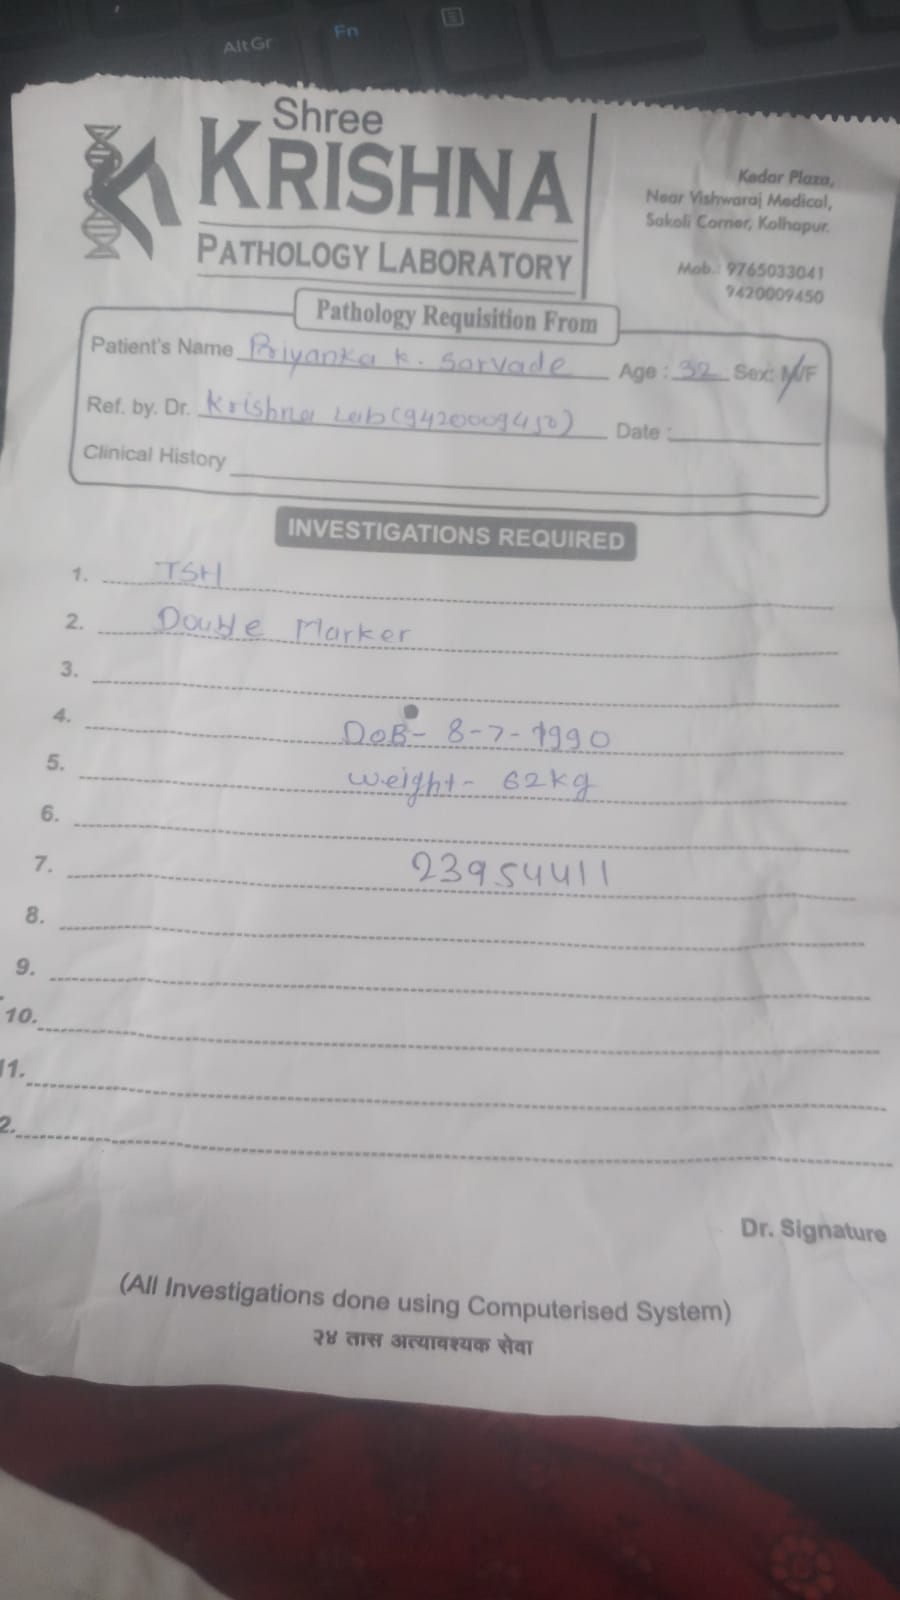 AltGr Fn
Shree
KRISHNA
PATHOLOGY LABORATORY
Kedar Plaza,
Near Vishwaraj Medical,
Sakoli Corner, Kolhapur.
Mob.: 9765033041
9420009450
Pathology Requisition From
Patient's Name Priyanka K. Sarvade Age : 32 Sex: M/F
Ref. by. Dr. Krishna Lab (9420009450) Date :
Clinical History
INVESTIGATIONS REQUIRED
1. TSH
2. Double Marker
3.
4. DOB- 8-7-1990
5. weight- 62kg
6.
7. 23954411
8.
9.
10.
11.
2.
Dr. Signature
(All Investigations done using Computerised System)
२४ तास अत्यावश्यक सेवा